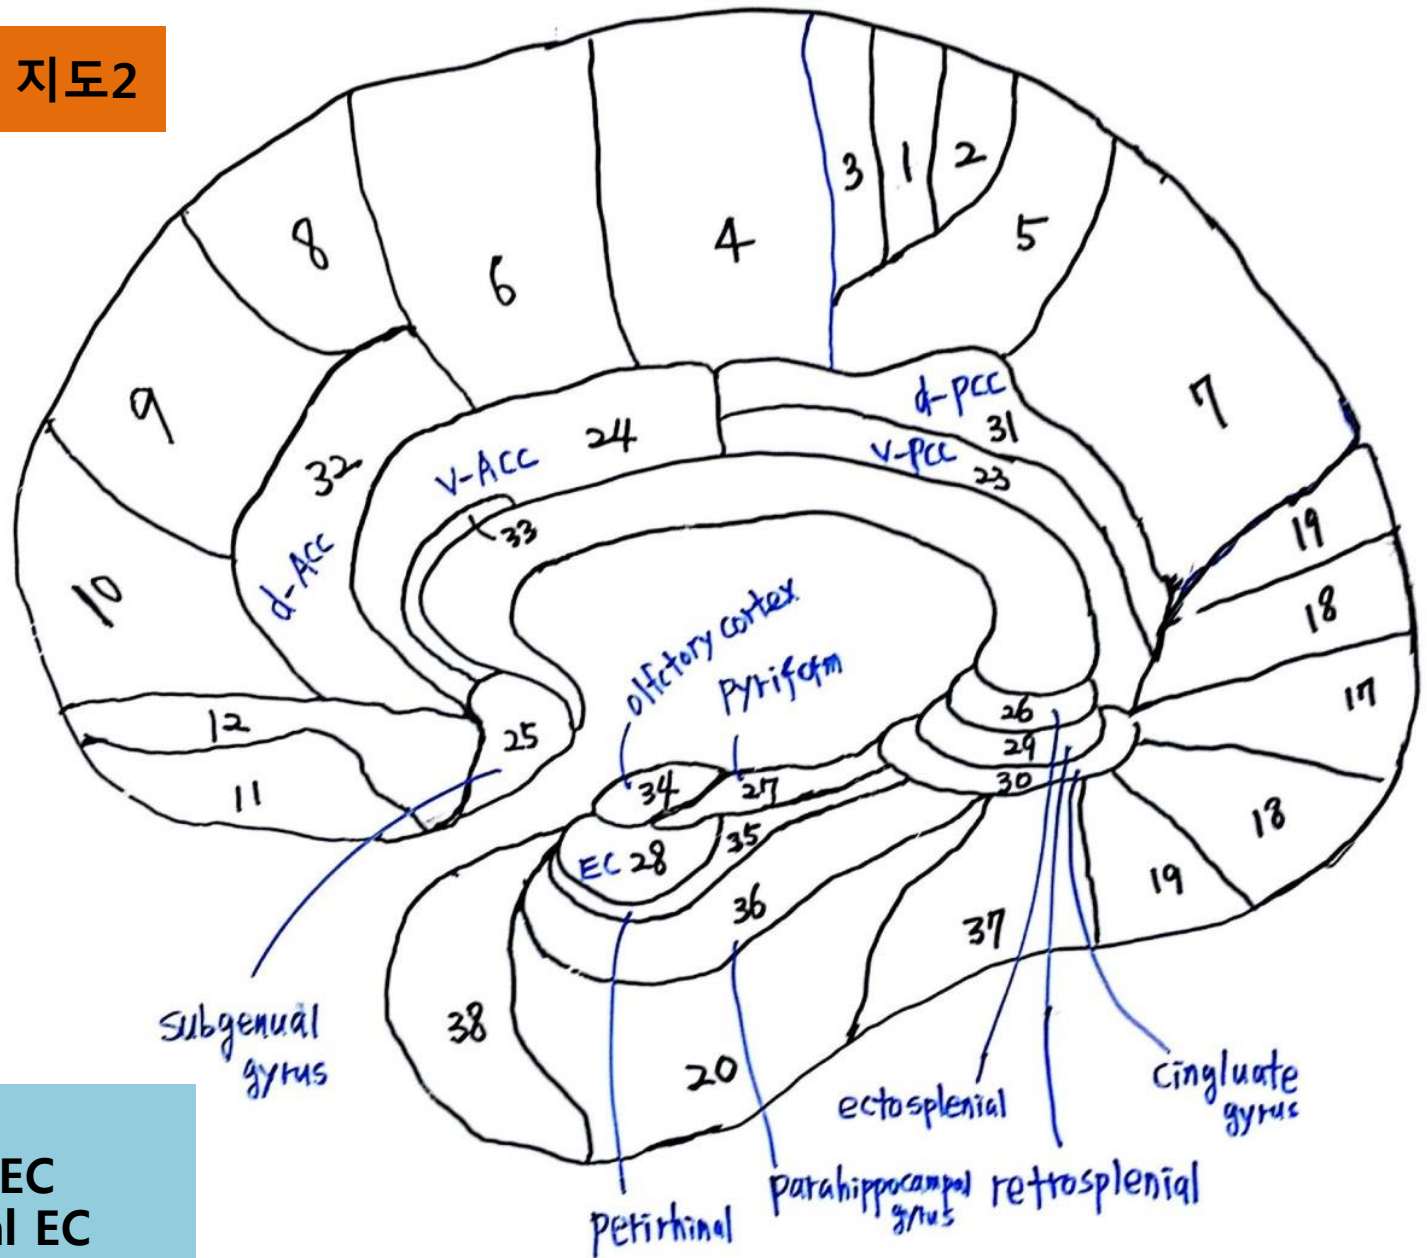 지도2
3
1
2
8
6
4
5
9
7
d-PCC
31
24
v-PCC
23
32
v-ACC
33
19
d-ACC
10
18
olfctory cortex
pyriform
17
12
25
26
29
11
34
27
30
35
EC 28
18
36
19
37
38
subgenual
gyrus
20
ectosplenial
cingluate
gyrus
perirhinal
parahippocampal
gyrus
retrosplenial
EC
EC